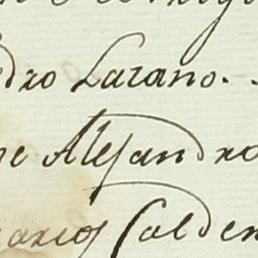 dro Lazano.
ne Alejandro
arios Calder